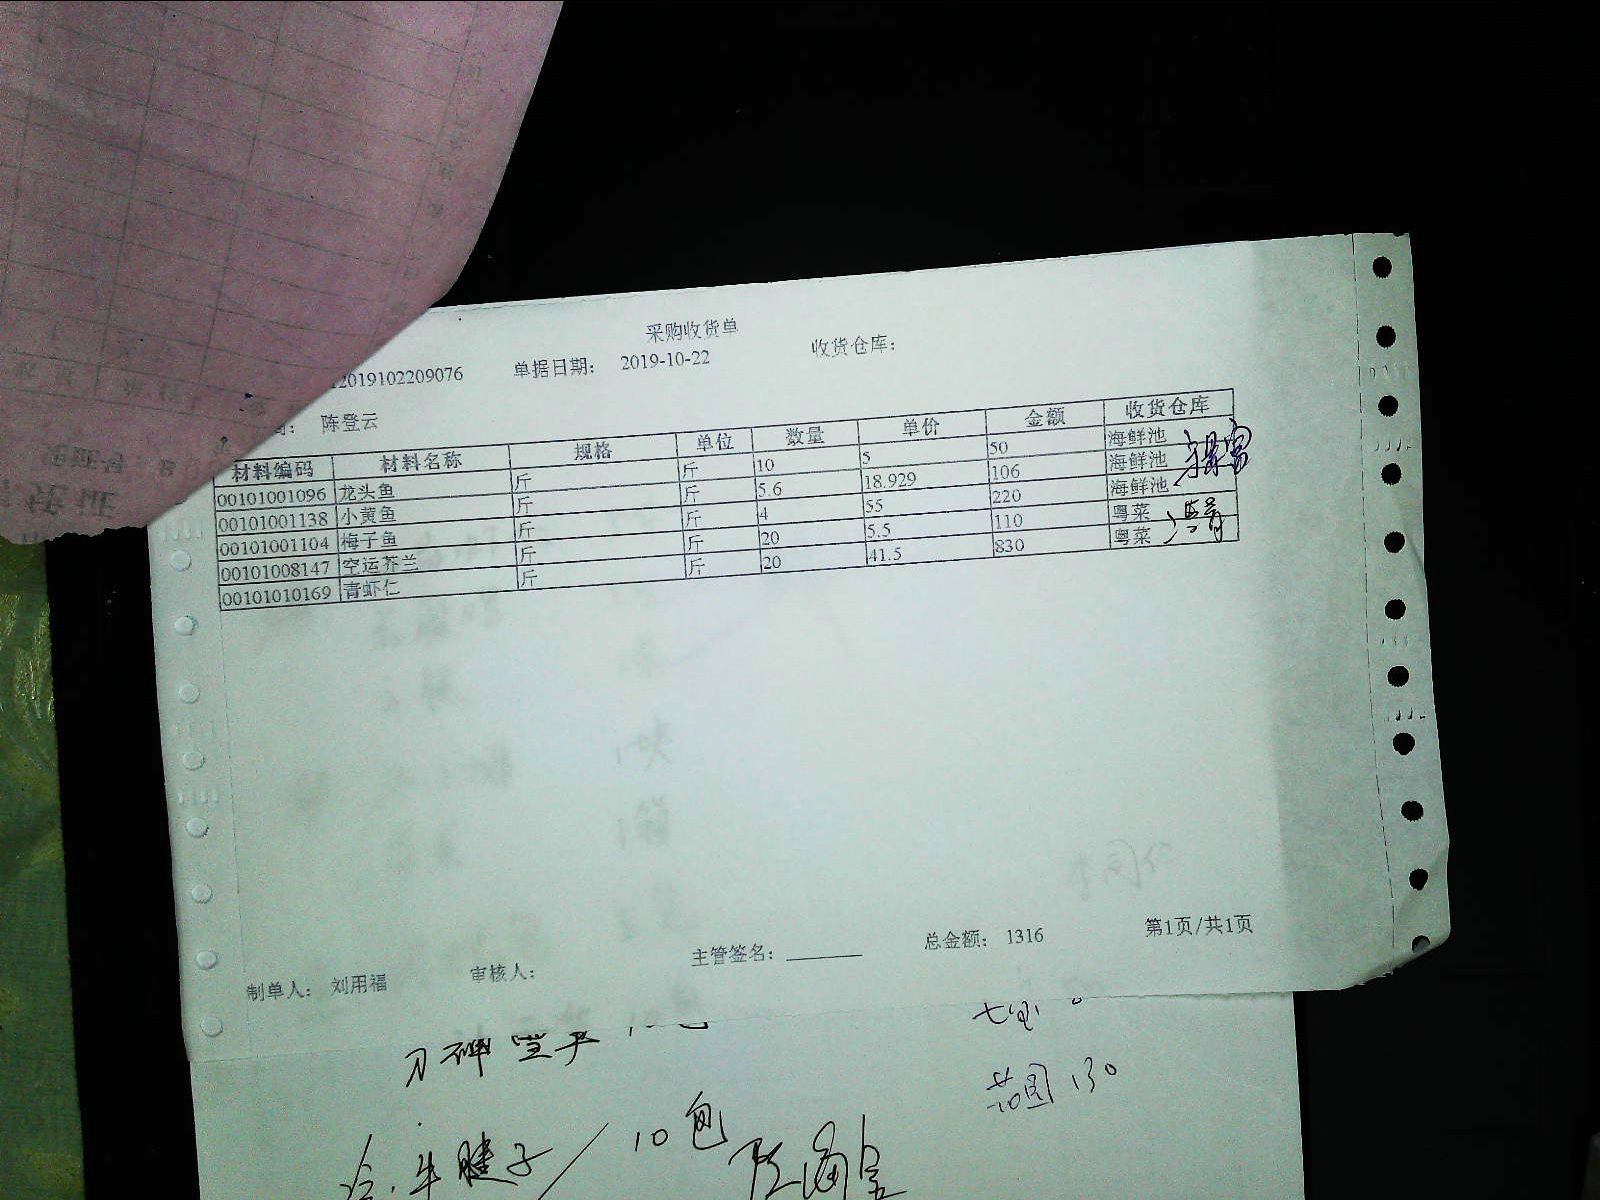 采购收货单
2019102209076 单据日期: 2019-10-22 收货仓库:
陈登云
材料编码 材料名称 规格 单位 数量 单价 金额 收货仓库
00101001096 龙头鱼 斤 斤 10 5 50 海鲜池
00101001138 小黄鱼 斤 斤 5.6 18.929 106 海鲜池
00101001104 梅子鱼 斤 斤 4 55 220 海鲜池
00101008147 空运芥兰 斤 斤 20 5.5 110 粤菜
00101010169 青虾仁 斤 斤 20 41.5 830 粤菜
制单人: 刘用福 审核人: 主管签名: 总金额: 1316 第1页/共1页
130
牛腱子 / 10包